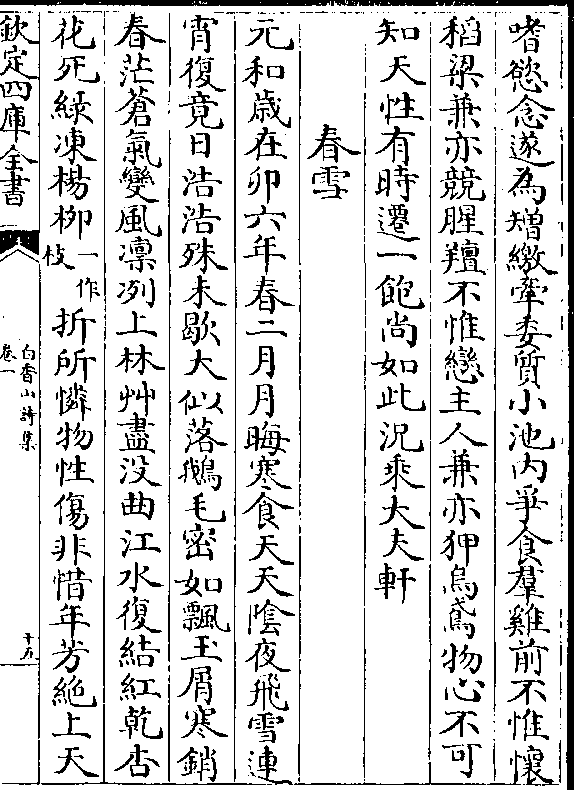 嗜慾念遂為矰繳牽委質小池内爭食羣雞前不惟懷
稻粱兼亦競腥羶不惟戀主人兼亦狎烏鳶物心不可
知天性有時遷一飽尚如此況乗大夫軒
春雪
元和歳在卯六年春二月月晦寒食天天陰夜飛雪連
宵復竟日浩浩殊未歇大似落鵝毛密如飄玉屑寒銷
春茫蒼氣變風凛冽上林艸盡没曲江水復結紅乾杏
花死緑凍楊栁一作枝折所憐物性傷非惜年芳絶上天
欽定四庫全書
白香山詩集
卷一
十五